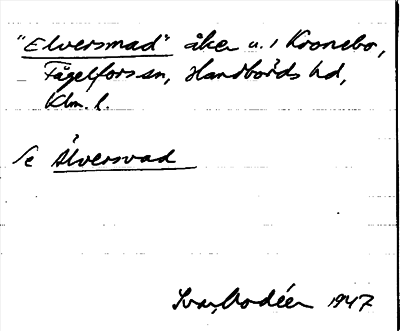 "Elversmad" åker u. i Kronobo,
Fågelfors sn, Handbörds hd,
Klm. l.
Se Älversvad
Ivar Modéer 1947